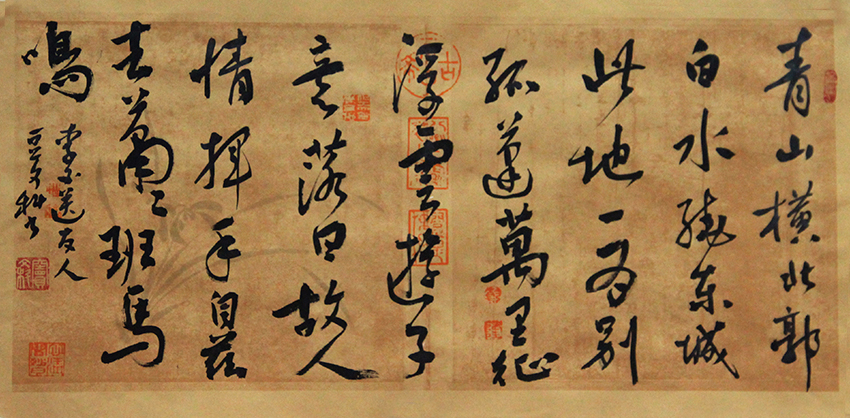 青山横北郭
白水繞东城
此地一为别
孤蓬萬里征
浮雲遊子
意落日故人
情揮手自茲
去蕭〻班馬
鳴
李白送友人